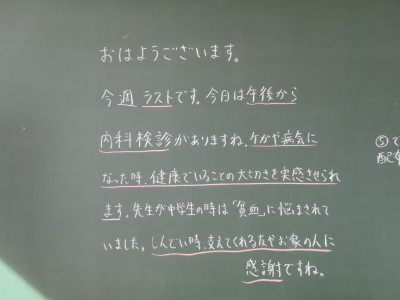 おはようございます。
今週ラストです。今日は午後から
内科検診がありますね。ケガや病気に
なった時、健康でいることの大切さを実感させられ
ます。先生が中学生の時は「貧血」に悩まされて
いました。しんどい時、支えてくれる友やお家の人に
感謝ですね。
⑤で
配布